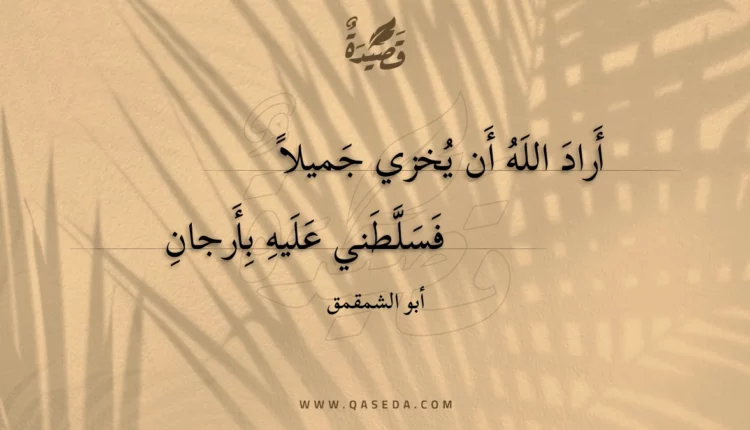 قَصِيْدَةٌ
أَرادَ اللَهُ أَن يُخزي جَميلاً
فَسَلَّطَني عَلَيهِ بِأَرجانِ
أبو الشمقمق
WWW.QASEDA.COM